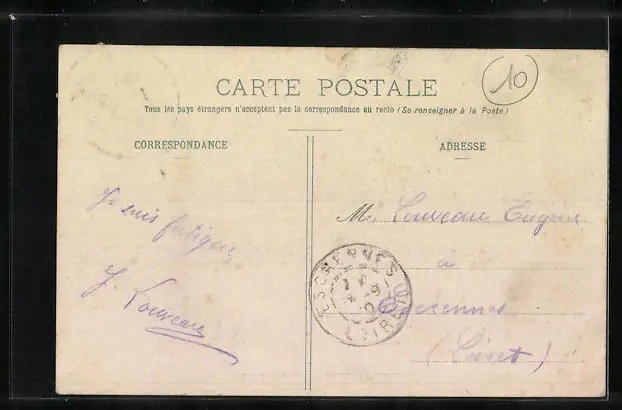 10
CARTE POSTALE
Tous les pays étrangers n'acceptent pas la correspondance au recto (Se renseigner à la Poste)
CORRESPONDANCE
ADRESSE
Je suis fatigué
J. Louveau
Mr Louveau Eugène
à
Escrennes
(Loiret)
ESCRENNES
LOIRET